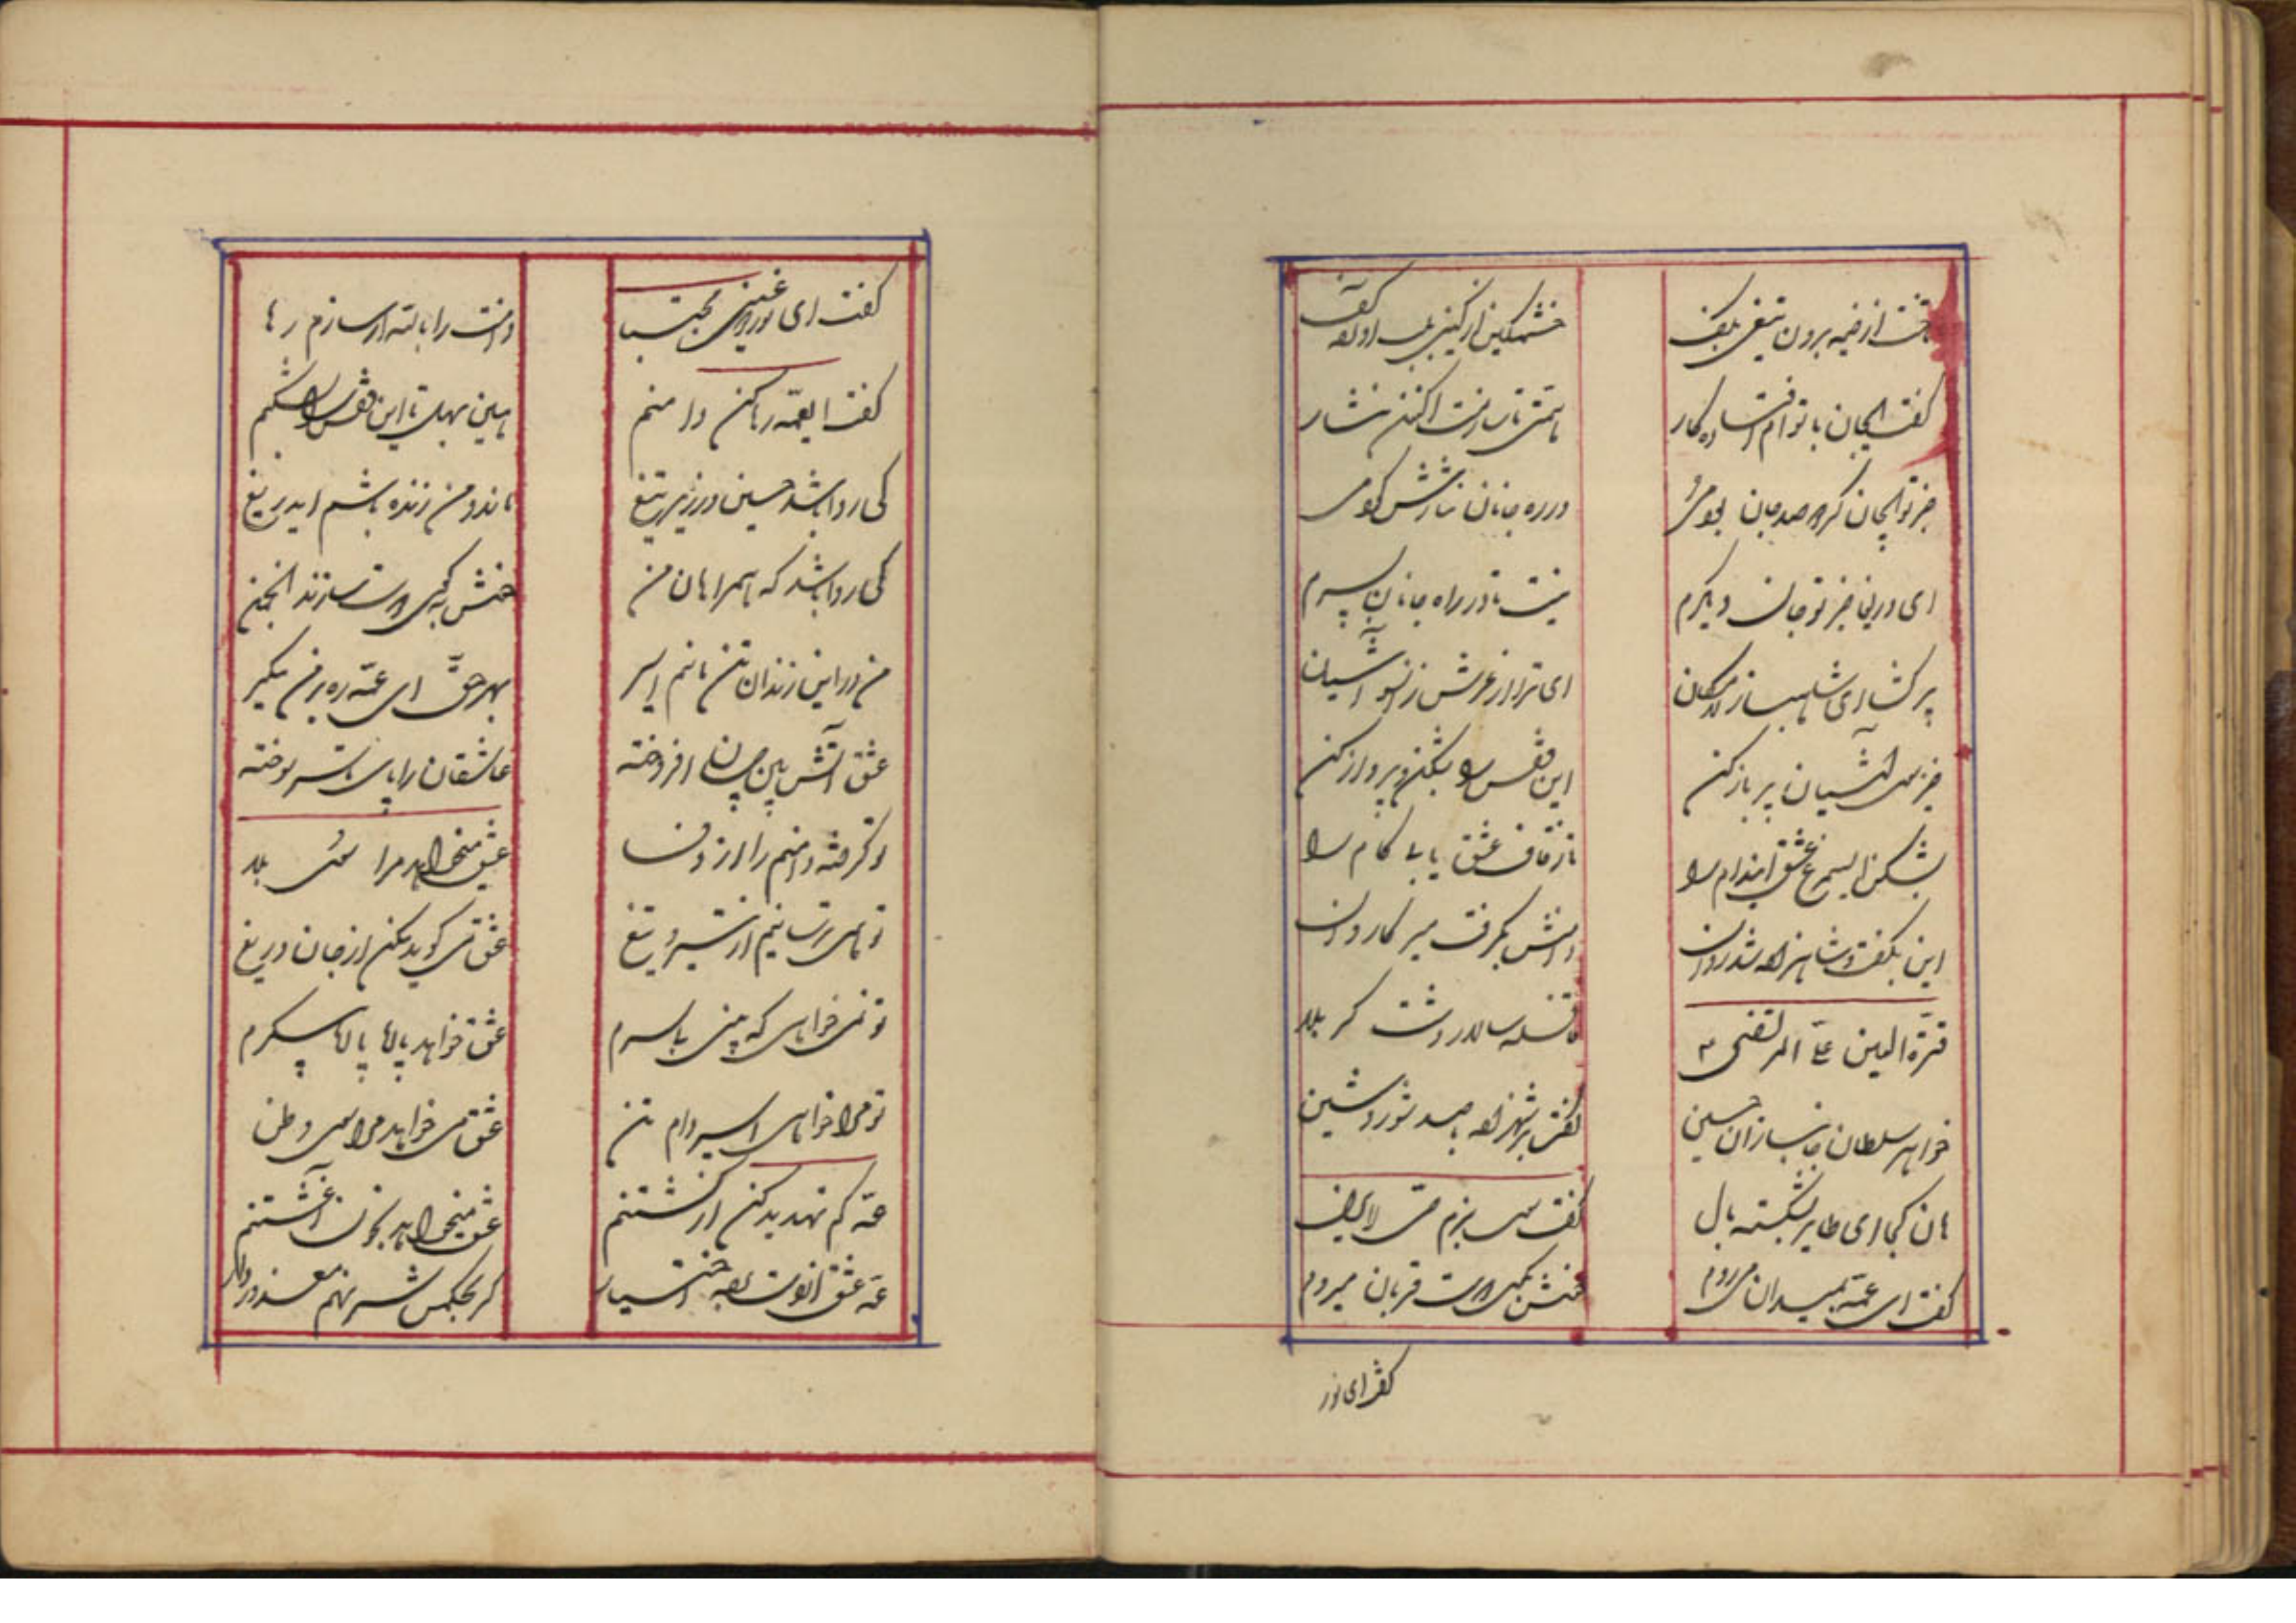 تاخت از خیمه برون تیغی بکف
خشمگین از کین بلب آورده کف
گفت ایجان با توام افتاده کار
همتی تا سازمت اکنون نثار
جز تو ایجان گر مرا صد جان بودی
در ره جانان نثارش کردمی
ای دریغا جز تو جان دیگرم
نیست تا در راه جانان بسپرم
پر گشا ای شاهباز لامکان
ای ترا از عرش زانسو آشیان
خیز سوی آشیان پر باز کن
این قفس را بشکن و پرواز کن
بشکن ای سیمرغ عشق این دام را
تا ز قاف عشق یابی کام را
این بگفت و شاهزاده شد روان
دامنش بگرفت میر کاروان
قرّة العین علیّ المرتضی
قافله سالار دشت کربلا
خواهر سلطان جانبازان حسین
گفت بر شهزاده با صد شور و شین
هان کجا ای طایر بشکسته بال
گفت سوی بزم حی لایزال
گفت ای عمّه بمیدان میروم
گفتش بهر قربان میروم
گفت ای نور
گفت ای نور دو عین مجتبا
دامنت را با لته ار سازم رها
گفت ایعمّه رها کن دامنم
هین بهل تا این قفس را بشکنم
کی روا باشد حسین در زیر تیغ
ماند و من زنده باشم ایدریغ
کی روا باشد که همراهان من
من در این زندان تن مانم اسیر
بهر حقّ ای عمّه ره بر من مگیر
عشق آتش بین چسان افروخته
عاشقان را پای تا سر سوخته
تو گرفته دامنم را از وفا
عشق میخواهد مرا سوی بلا
تو همی ترسانیم از تیر و تیغ
عشق می گوید مکن از جان دریغ
تو نمی خواهی که بینی با سرم
عشق خواهد پا پیکرم
تو مرا خواهی اسیر دام تن
عشق می خواهد مرا سوی وطن
عمّه کم تهدید کن از کشتنم
عشق میخواهد بخون آغشتنم
عمّه عشق از دست برده اختیار
گر بحکمش سر نهم معذور دار